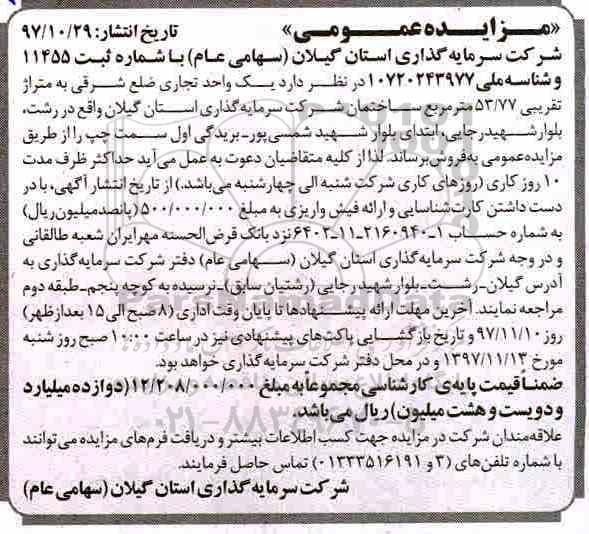 «مـزایـده عـمـومـی» تاریخ انتشار: ۹۷/۱۰/۲۹
شرکت سرمایه گذاری استان گیلان (سهامی عام) با شماره ثبت ۱۱۴۵۵
و شناسه ملی ۱۰۷۲۰۲۴۳۹۷۷ در نظر دارد یک واحد تجاری ضلع شرقی به متراژ
تقریبی ۵۳/۷۷ متر مربع ساختمان شرکت سرمایه گذاری استان گیلان واقع در رشت،
بلوار شهید رجایی، ابتدای بلوار شهید شمسی پور-بریدگی اول سمت چپ را از طریق
مزایده عمومی به فروش برساند. لذا از کلیه متقاضیان دعوت به عمل می آید حداکثر ظرف مدت
۱۰ روز کاری (روزهای کاری شرکت شنبه الی چهارشنبه می باشد.) از تاریخ انتشار آگهی، با در
دست داشتن کارت شناسایی و ارائه فیش واریزی به مبلغ ۵۰۰/۰۰۰/۰۰۰ (پانصد میلیون ریال)
به شماره حساب ۱-۲۱۶۰۹۴۰-۱۱-۶۴۰۲ نزد بانک قرض الحسنه مهر ایران شعبه طالقانی
و در وجه شرکت سرمایه گذاری استان گیلان (سهامی عام) دفتر شرکت سرمایه گذاری به
آدرس گیلان-رشت-بلوار شهید رجایی (رشتیان سابق)-نرسیده به کوچه پنجم-طبقه دوم
مراجعه نمایند. آخرین مهلت ارائه پیشنهادها تا پایان وقت اداری (۸ صبح الی ۱۵ بعدازظهر)
روز ۹۷/۱۱/۱۰ و تاریخ بازگشایی پاکت های پیشنهادی نیز در ساعت ۱۰:۰۰ صبح روز شنبه
مورخ ۱۳۹۷/۱۱/۱۳ و در محل دفتر شرکت سرمایه گذاری خواهد بود.
ضمناً قیمت پایه ی کارشناسی مجموعاً به مبلغ ۱۲/۲۰۸/۰۰۰/۰۰۰ (دوازده میلیارد
و دویست و هشت میلیون) ریال می باشد.
علاقه مندان شرکت در مزایده جهت کسب اطلاعات بیشتر و دریافت فرم های مزایده می توانند
با شماره تلفن های (۳ و ۰۱۳۳۳۵۱۶۱۹۱) تماس حاصل فرمایند.
شرکت سرمایه گذاری استان گیلان (سهامی عام)